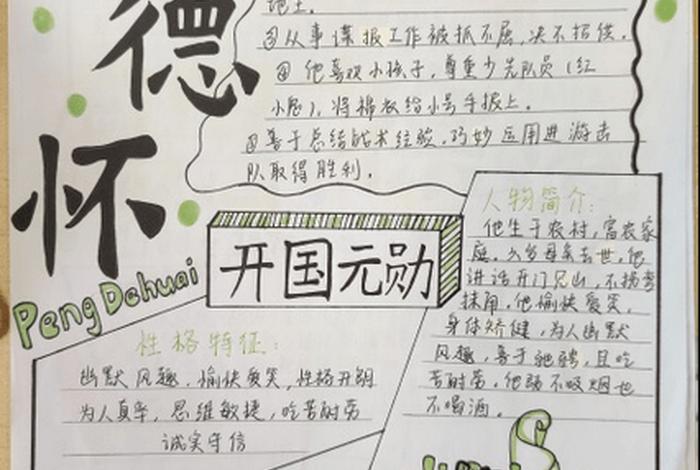 德
怀
Peng Dehuai
地主。
③从事谍报工作被抓不屈,决不招供。
④他喜欢小孩子,尊重少先队员(红
小鬼),将棉衣给小号手披上。
⑤善于总结战术经验,巧妙运用进游击
队取得胜利。
开国元勋
人物简介:
他生于农村,富农家
庭。父母去世,他
讲话开门见山,不拐弯
抹角,他愉快爱笑,
身体矫健,为人幽默
风趣,善于驰骋,且吃
苦耐劳,他既不吸烟也
不喝酒。
性格特征:
幽默风趣、愉快爱笑,性格开朗
为人真率,思维敏捷,吃苦耐劳
诚实守信